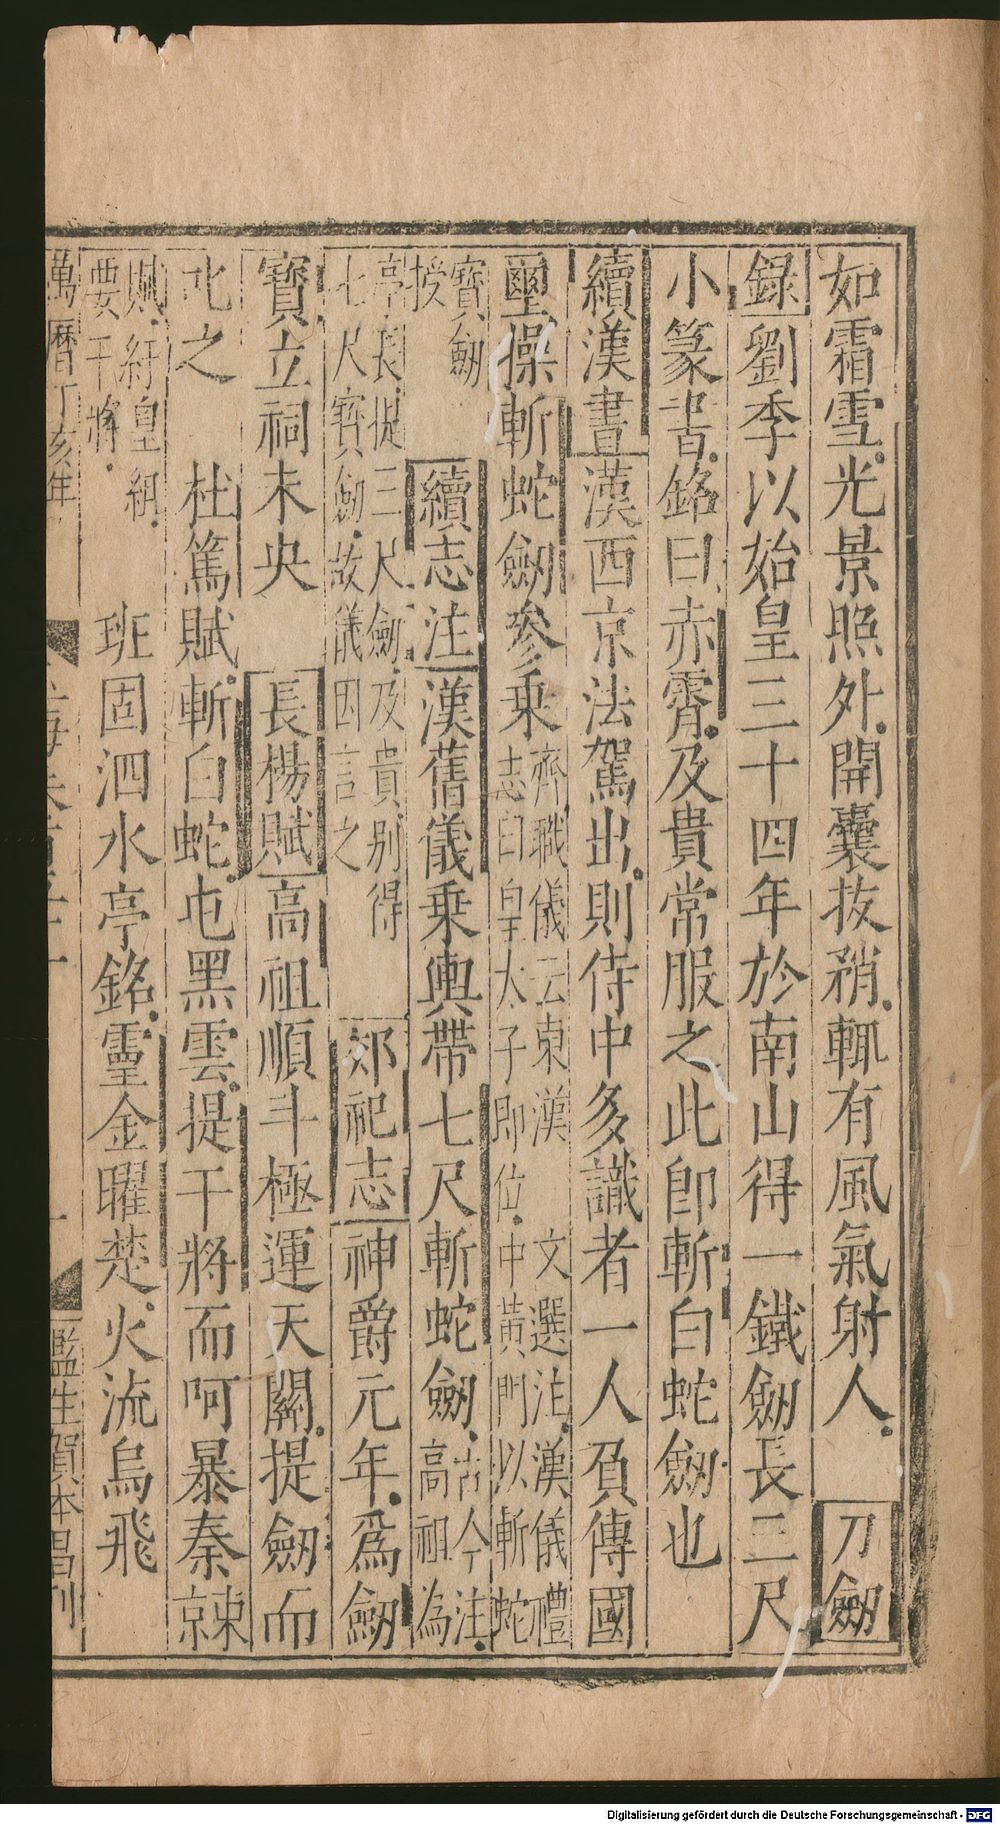 如霜雪光景照外開囊拔鞘輒有風氣射人 刀劒
錄劉季以始皇三十四年於南山得一鐵劒長三尺
小篆書銘曰赤霄及貴常服之此卽斬白蛇劒也
續漢書漢西京法駕出則侍中多識者一人負傳國
璽操斬蛇劒參乗
齊職儀云東漢 文選注漢儀禮
志曰皇太子即位中黃門以斬蛇
寶劒
授
續志注漢舊儀乗輿帶七尺斬蛇劒
古今注
高祖為
亭長提三尺劒及貴别得
七尺寶劒故儀因言之
郊祀志神爵元年爲劒
寶立祠未央 長楊賦高祖順斗極運天關提劒而
𠮟之 杜篤賦斬白蛇屯黑雲提干將而呵暴秦
賦紆皇組
要干將
班固泗水亭銘靈金曜楚火流烏飛
萬曆丁亥年
監生賀本昌刊
Digitalisierung gefördert durch die Deutsche Forschungsgemeinschaft - DFG